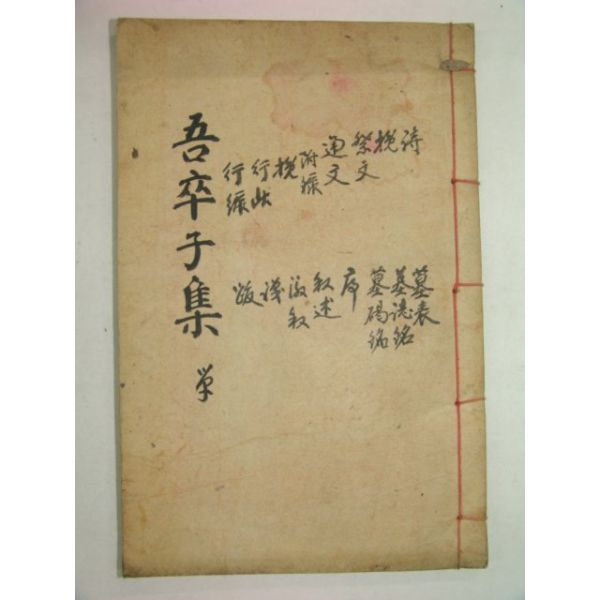 吾卒子集 単
詩
挽
祭文
通文
附錄
挽
行狀
行錄
墓表
墓誌銘
墓碣銘
序
叙述
後叙
識
跋